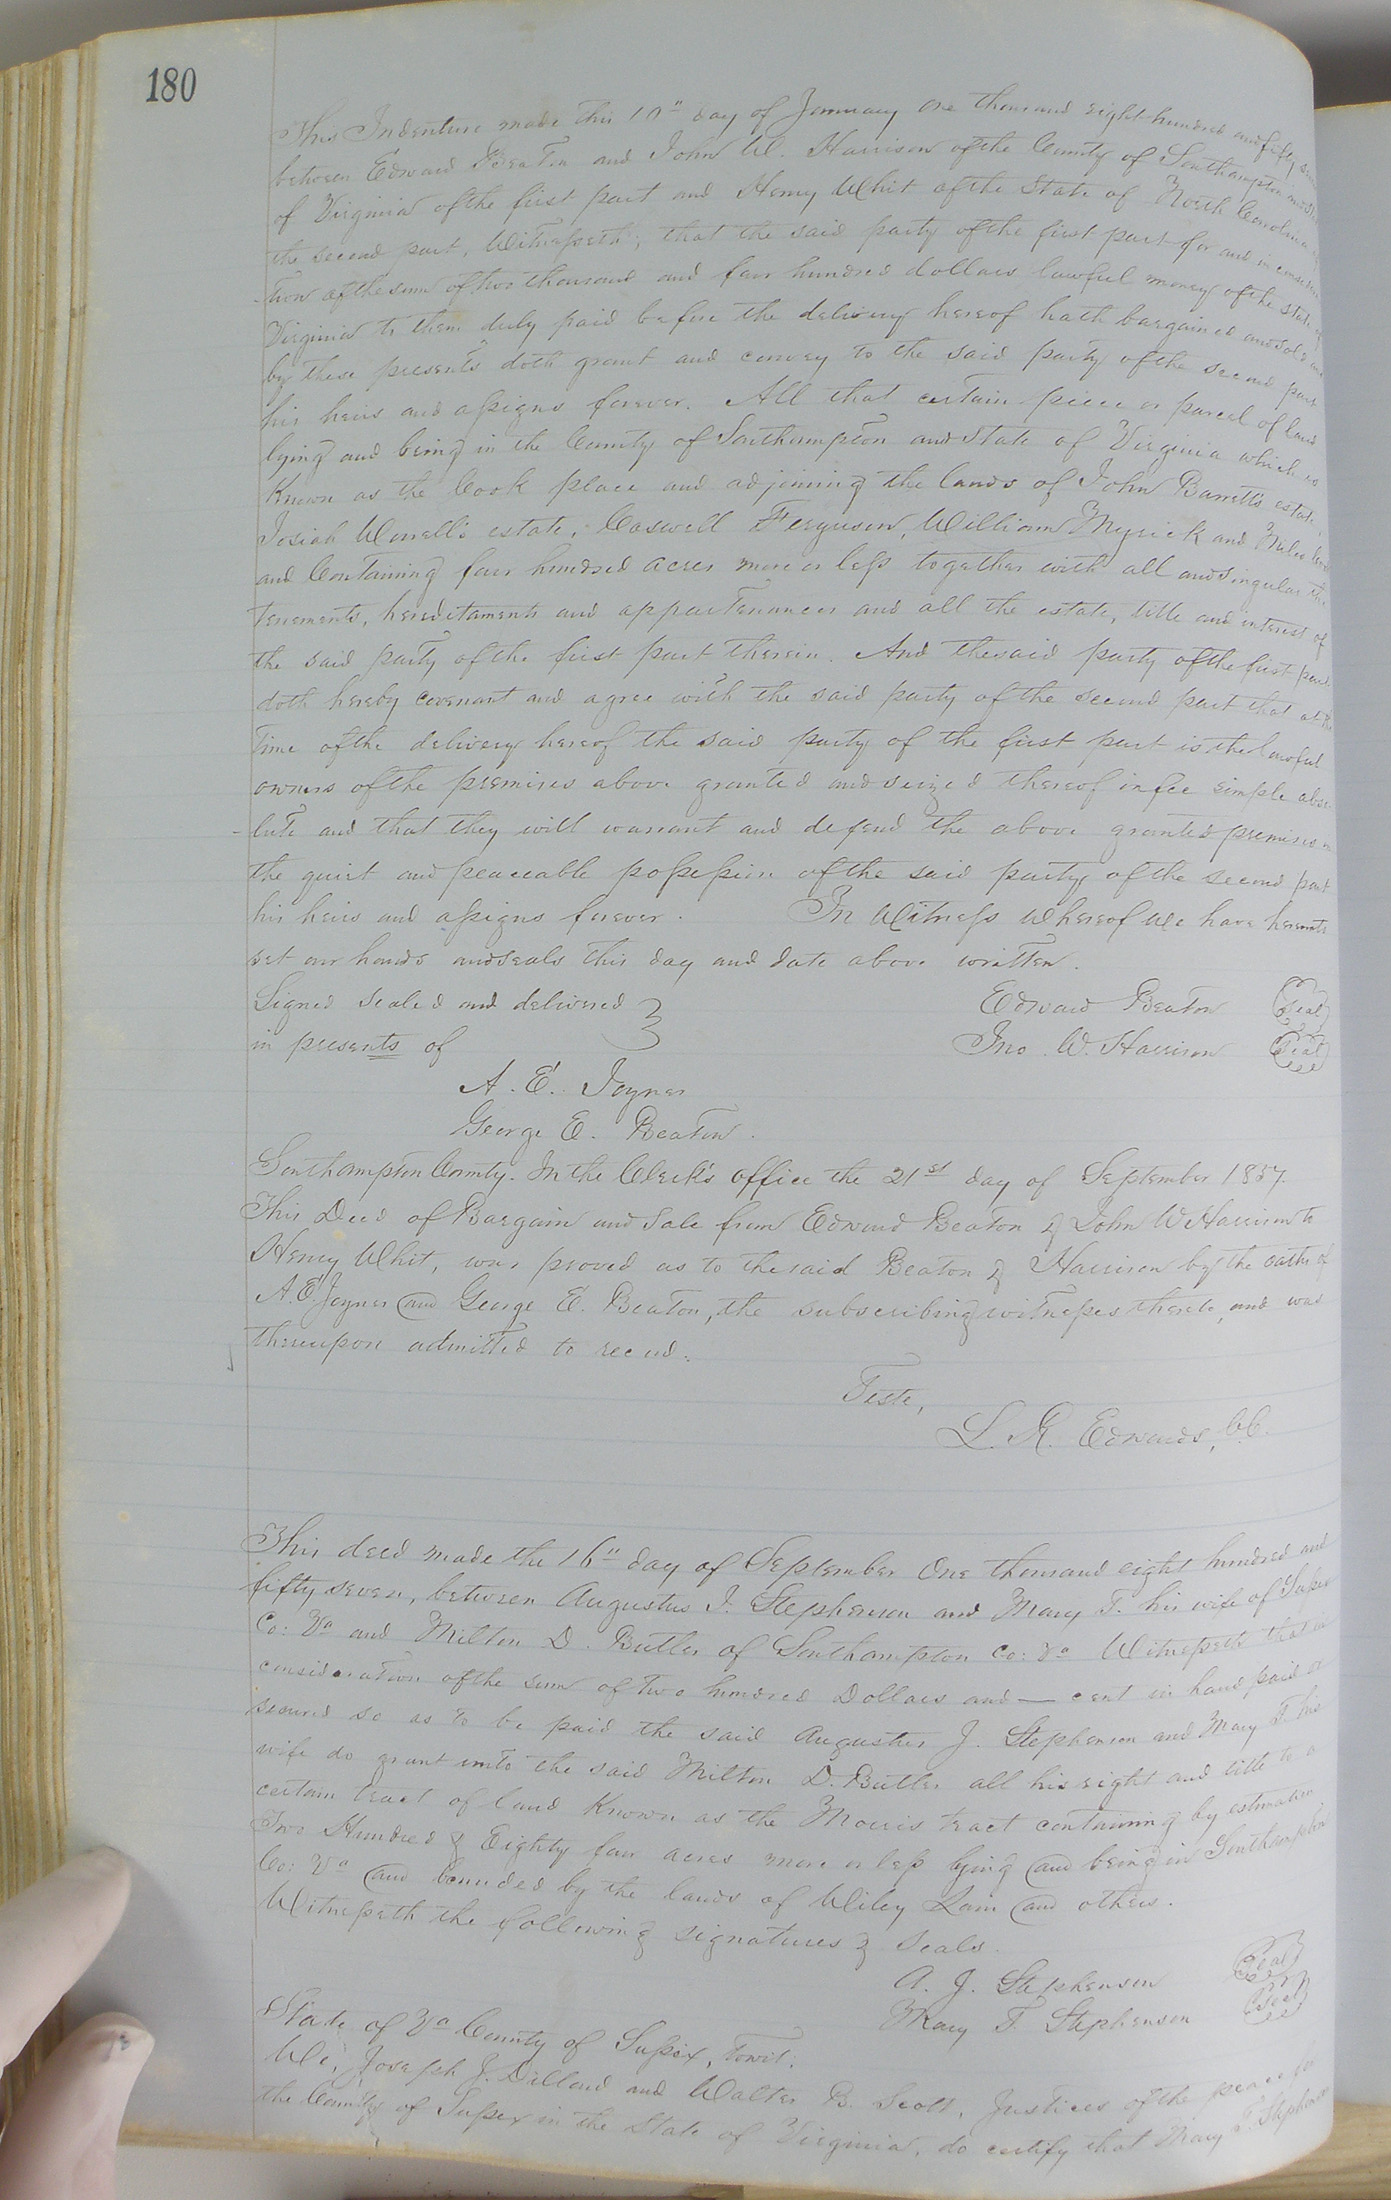 180
This Indenture made this 10" day of January one thousand eight hundred and fifty
between Edward Beaton and John W. Harrison of the County of Southampton and
of Virginia of the first part and Henry Whit of the State of North Carolina of
the second part, Witnesseth; that the said party of the first part for and in considera
-tion of the sum of two thousand and four hundred dollars lawful money of the State of
Virginia to them duly paid before the delivery hereof hath bargained and sold and
by these presents doth grant and convey to the said party of the second part
his heirs and assigns forever. All that certain piece or parcel of land
lying and being in the County of Southampton and State of Virginia which is
Known as the Cook place and adjoining the lands of John Barrett's estate,
Josiah Worrell's estate, Caswell Ferguson, William Myrick and
and Containing four hundred acres more or less together with all and singular the
tenements, hereditaments and appurtenances and all the estate, title and interest of
the said party of the first part therein. And the said party of the first part
doth hereby covenant and agree with the said party of the second part that at the
time of the delivery hereof the said party of the first part is the lawful
owners of the premises above granted and seized thereof in fee simple abso
-lute and that they will warrant and defend the above granted premises in
the quiet and peaceable possession of the said party of the second part
his heirs and assigns forever. In Witness Whereof We have hereunto
set our hands and seals this day and date above written.
Signed sealed and delivered
in presents of
Edward Beaton Seal
Jno. W. Harrison Seal
A. E. Joyner
George E. Beaton.
Southampton County. In the Clerk's office the 21st day of September 1857.
This Deed of Bargain and Sale from Edward Beaton & John W Harrison to
Henry Whit, was proved as to the said Beaton & Harrison by the oaths of
A. E. Joyner and George E. Beaton, the subscribing witnesses thereto, and was
thereupon admitted to record.
Teste,
L. R. Edwards, C.C.
This deed made the 16" day of September One thousand eight hundred and
fifty seven, between Augustus J. Stephenson and Mary T. his wife of Sussex
Co: Va and Milton D. Butler of Southampton Co: Va Witnesseth that in
consideration of the sum of two hundred Dollars and — cent in hand paid or
secured so as to be paid the said Augustus J. Stephenson and Mary T. his
wife do grant unto the said Milton D. Butler all his right and title to a
certain tract of land Known as the Morris tract containing by estimation
Two Hundred & Eighty four acres more or less lying and being in Southampton
Co: Va and bounded by the lands of Wiley Lain and others.
Witnesseth the following signatures & seals.
A. J. Stephenson Seal
Mary T. Stephenson Seal
State of Va County of Sussex, Towit:
We, Joseph J. Dillard and Walter B. Scott, Justices of the peace for
the County of Sussex in the State of Virginia, do certify that Mary T. Stephenson